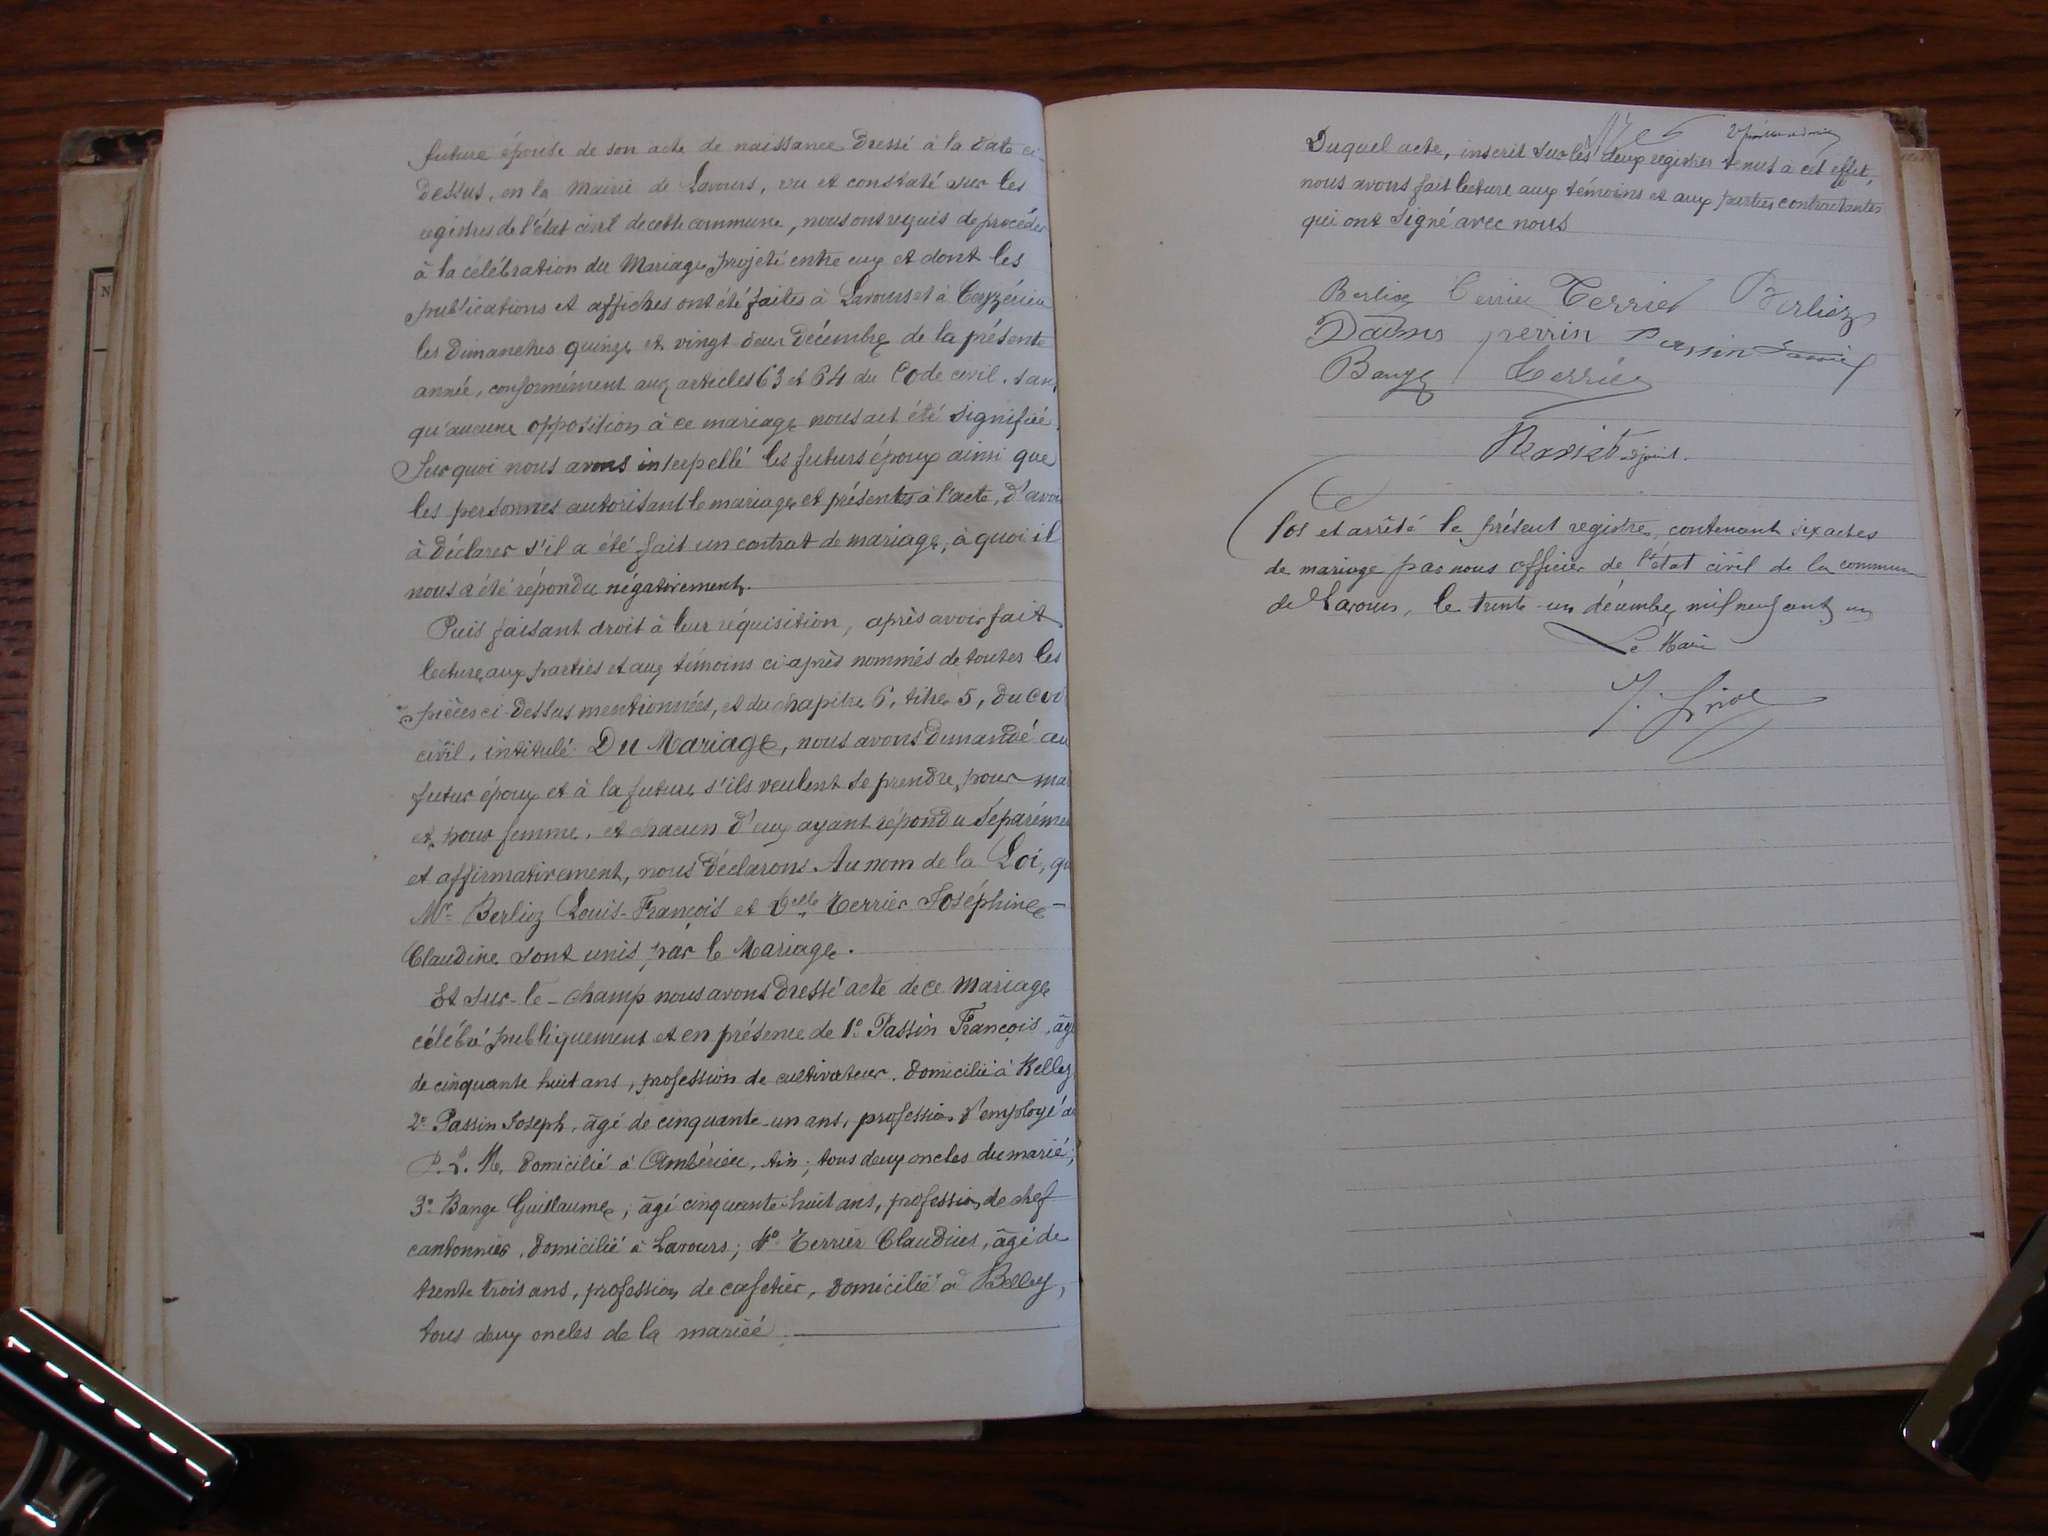 future épouse de son acte de naissance dressé à la date ci-
dessus, en la Mairie de Lavours, vu et constaté sur les
registres de l'état civil de cette commune, nous ont requis de procéder
à la célébration du Mariage projeté entre eux et dont les
publications et affiches ont été faites à Lavours et à Ceyzérieu
les dimanches quinze et vingt deux décembre de la présente
année, conformément aux articles 63 et 64 du Code civil, sans
qu'aucune opposition à ce mariage nous ait été signifiée.
Sur quoi nous avons interpellé les futurs époux ainsi que
les personnes autorisant le mariage et présentes à l'acte, d'avoir
à déclarer s'il a été fait un contrat de mariage, à quoi il
nous a été répondu négativement.
Puis faisant droit à leur réquisition, après avoir fait
lecture aux parties et aux témoins ci-après nommés de toutes les
pièces ci-dessus mentionnées, et du chapitre 6, titre 5, du Code
civil, intitulé Du Mariage, nous avons demandé au
futur époux et à la future s'ils veulent se prendre pour mari
et pour femme, et chacun d'eux ayant répondu séparément
et affirmativement, nous déclarons Au nom de la Loi, que
Mr. Berlioz Louis-François et Delle Terrier Joséphine-
Claudine sont unis par le Mariage.
Et sur-le-champ nous avons dressé acte de ce Mariage
célébré publiquement et en présence de 1° Passin François, âgé
de cinquante huit ans, profession de cultivateur, domicilié à Belley
2° Passin Joseph, âgé de cinquante-un ans, profession d'employé au
P. L. M, domicilié à Ambérieu, Ain; tous deux oncles du marié;
3° Bange Guillaume, âgé cinquante-huit ans, profession de chef
cantonnier, domicilié à Lavours; 4° Terrier Claudius, âgé de
trente trois ans, profession de cafetier, domicilié à Belley,
tous deux oncles de la mariée
Duquel acte, inscrit sur les deux registres tenus à cet effet,
nous avons fait lecture aux témoins et aux parties contractantes
qui ont signé avec nous
Berlioz Terrier Terrier Berlioz
perrin Passin
Bange Terrier
adjoint.
Clos et arrêté le présent registre, contenant six actes
de mariage par nous officier de l'état civil de la commune
de Lavours, le trente-un décembre mil neuf cent un
Le Maire